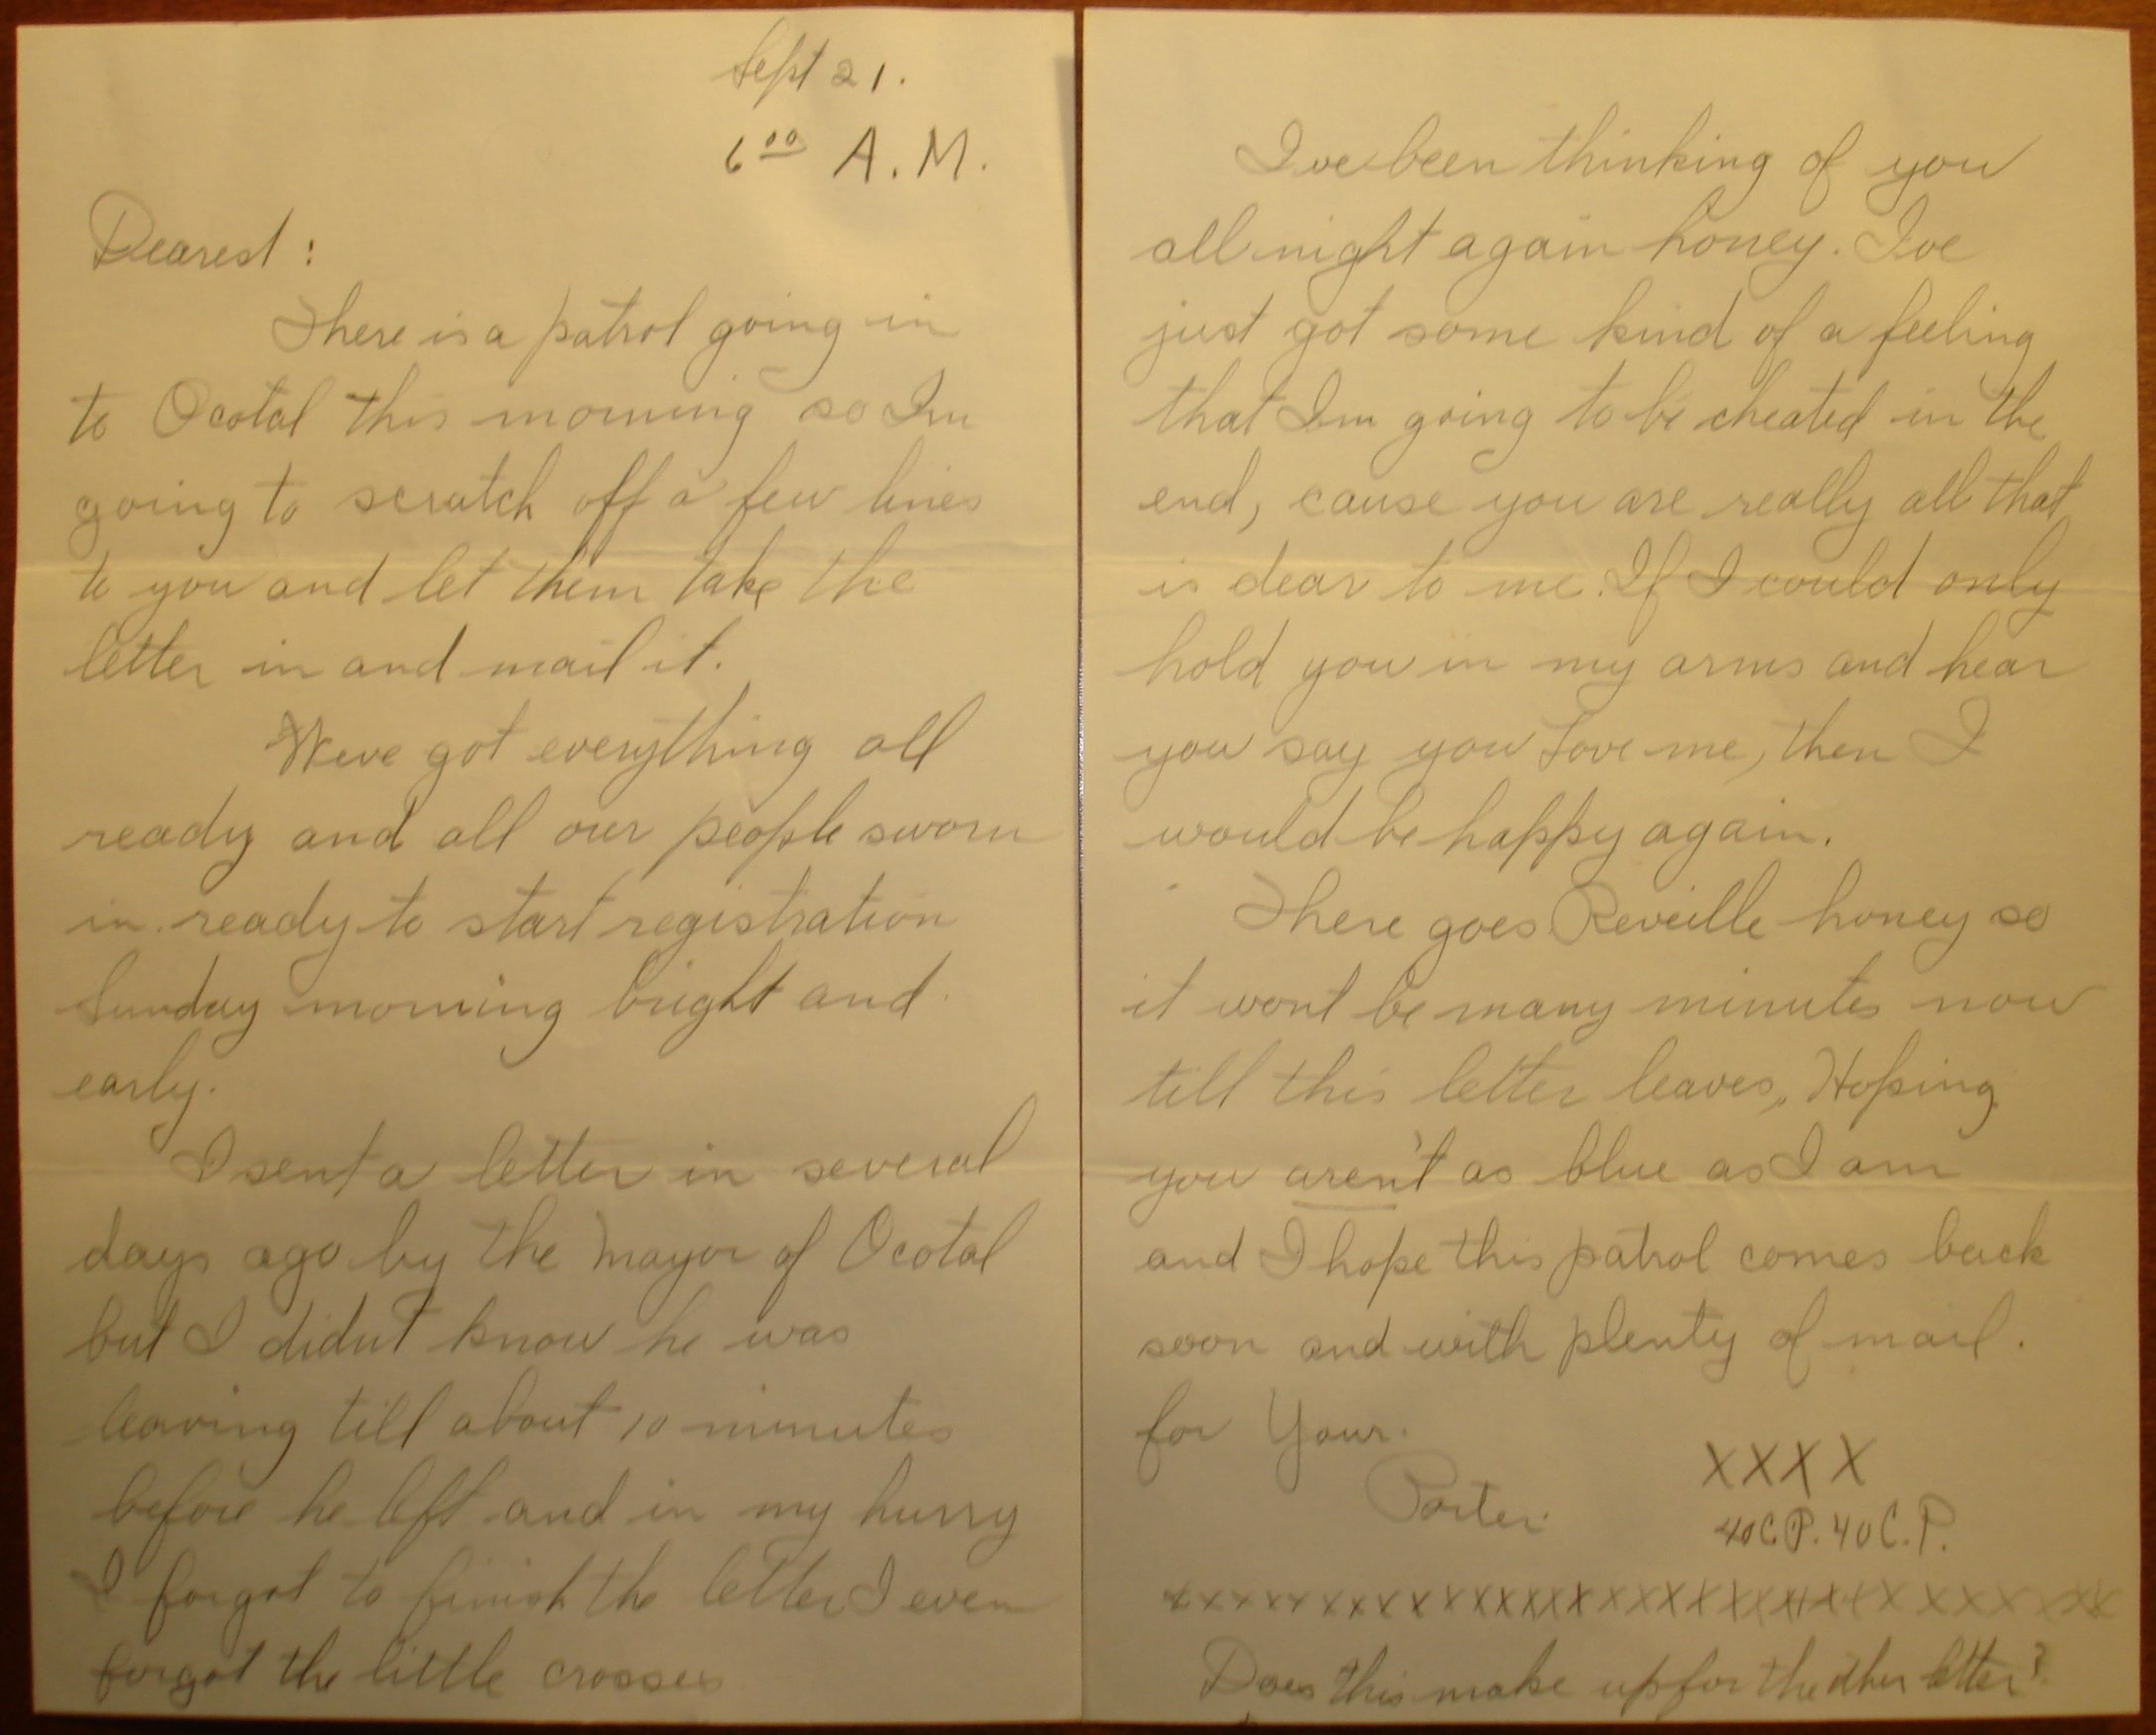 Sept 21.
6 00 A.M.
Dearest:
There is a patrol going in
to Ocotal this morning so Im
going to scratch off a few lines
to you and let them take the
letter in and mail it.
Weve got everything all
ready and all our people sworn
in ready to start registration
Sunday morning bright and
early.
I sent a letter in several
days ago by the Mayor of Ocotal
but I didnt know he was
leaving till about 10 minutes
before he left and in my hurry
I forgot to finish the letter I even
forgot the little crosses
Ive been thinking of you
all night again honey. Ive
just got some kind of a feeling
that Im going to be cheated in the
end, cause you are really all that
is dear to me. If I could only
hold you in my arms and hear
you say you Love me, then I
would be happy again.
There goes Reveille honey so
it wont be many minutes now
till this letter leaves, Hoping
you aren't as blue as I am
and I hope this patrol comes back
soon and with plenty of mail.
for Your.
Porter.
XXXX
40C.P. 40C.P.
xxxxxxxxxxxxxxxxxxxxxxxxxxxxxxxxx
Does this make up for the other letter?